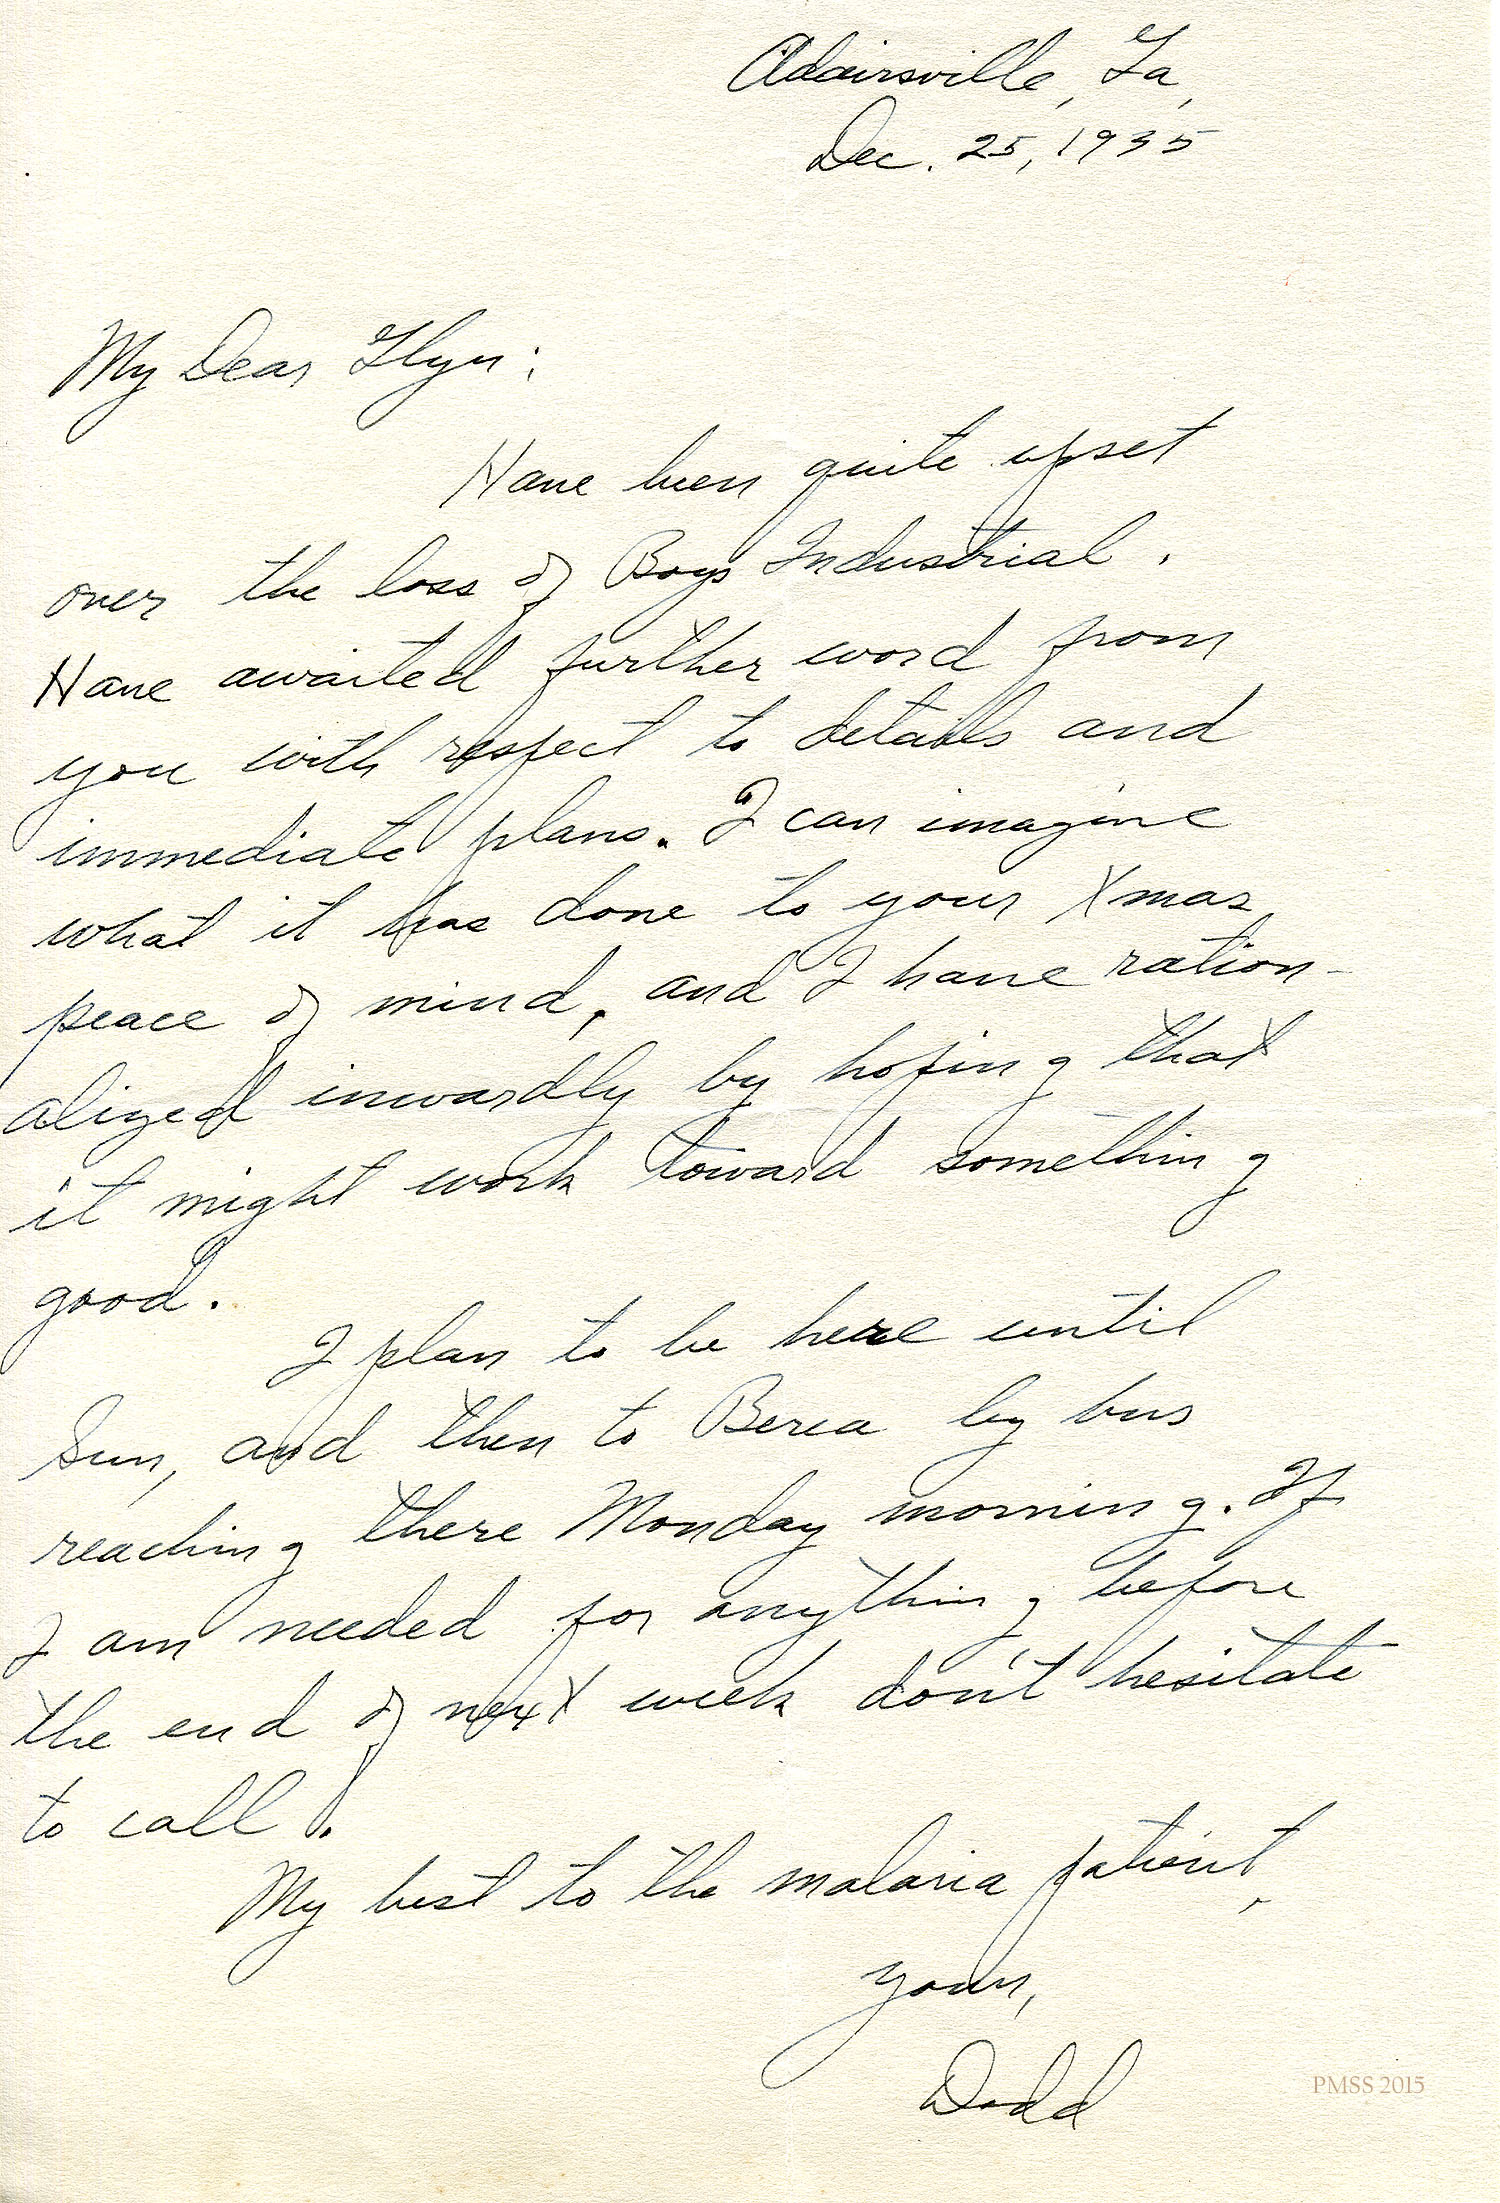 Adairsville, Ga,
Dec. 25, 1935
My Dear Glyn:
Have been quite upset
over the loss of Boys Industrial.
Have awaited further word from
you with respect to details and
immediate plans. I can imagine
what it has done to your Xmas
peace of mind, and I have ration-
alized inwardly by hoping that
it might work toward something
good.
I plan to be here until
Sun, and then to Berea by bus
reaching there Monday morning. If
I am needed for anything before
the end of next week don't hesitate
to call.
My best to the malaria patient,
yours,
Dodd
PMSS 2015